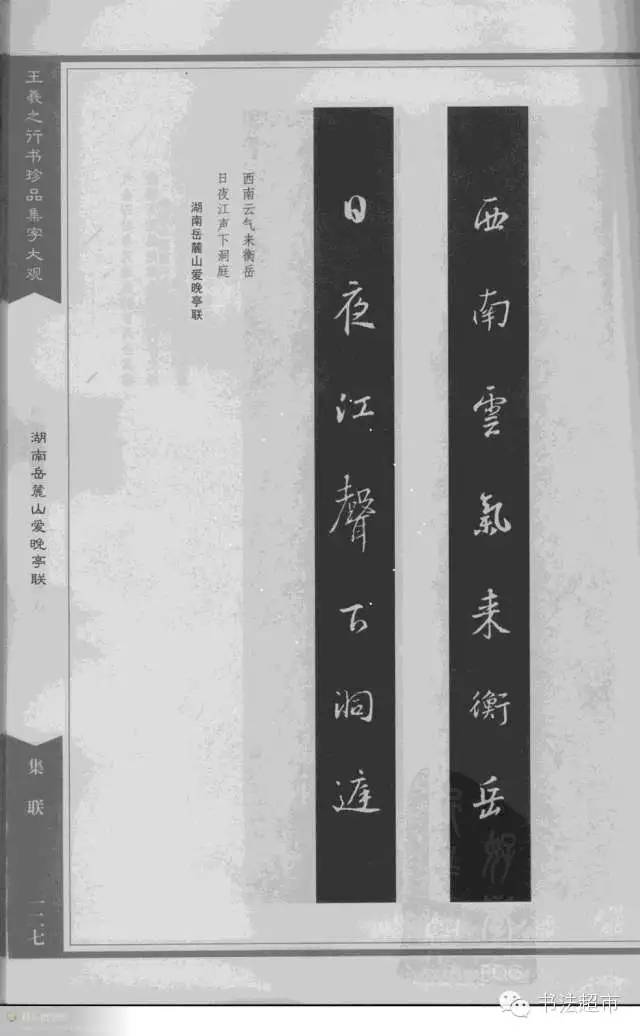 西南雲氣来衡岳
日夜江聲下洞庭
西南云气来衡岳
日夜江声下洞庭
湖南岳麓山爱晚亭联
王羲之行书珍品集字大观
湖南岳麓山爱晚亭联
集联
二一七
书法超市